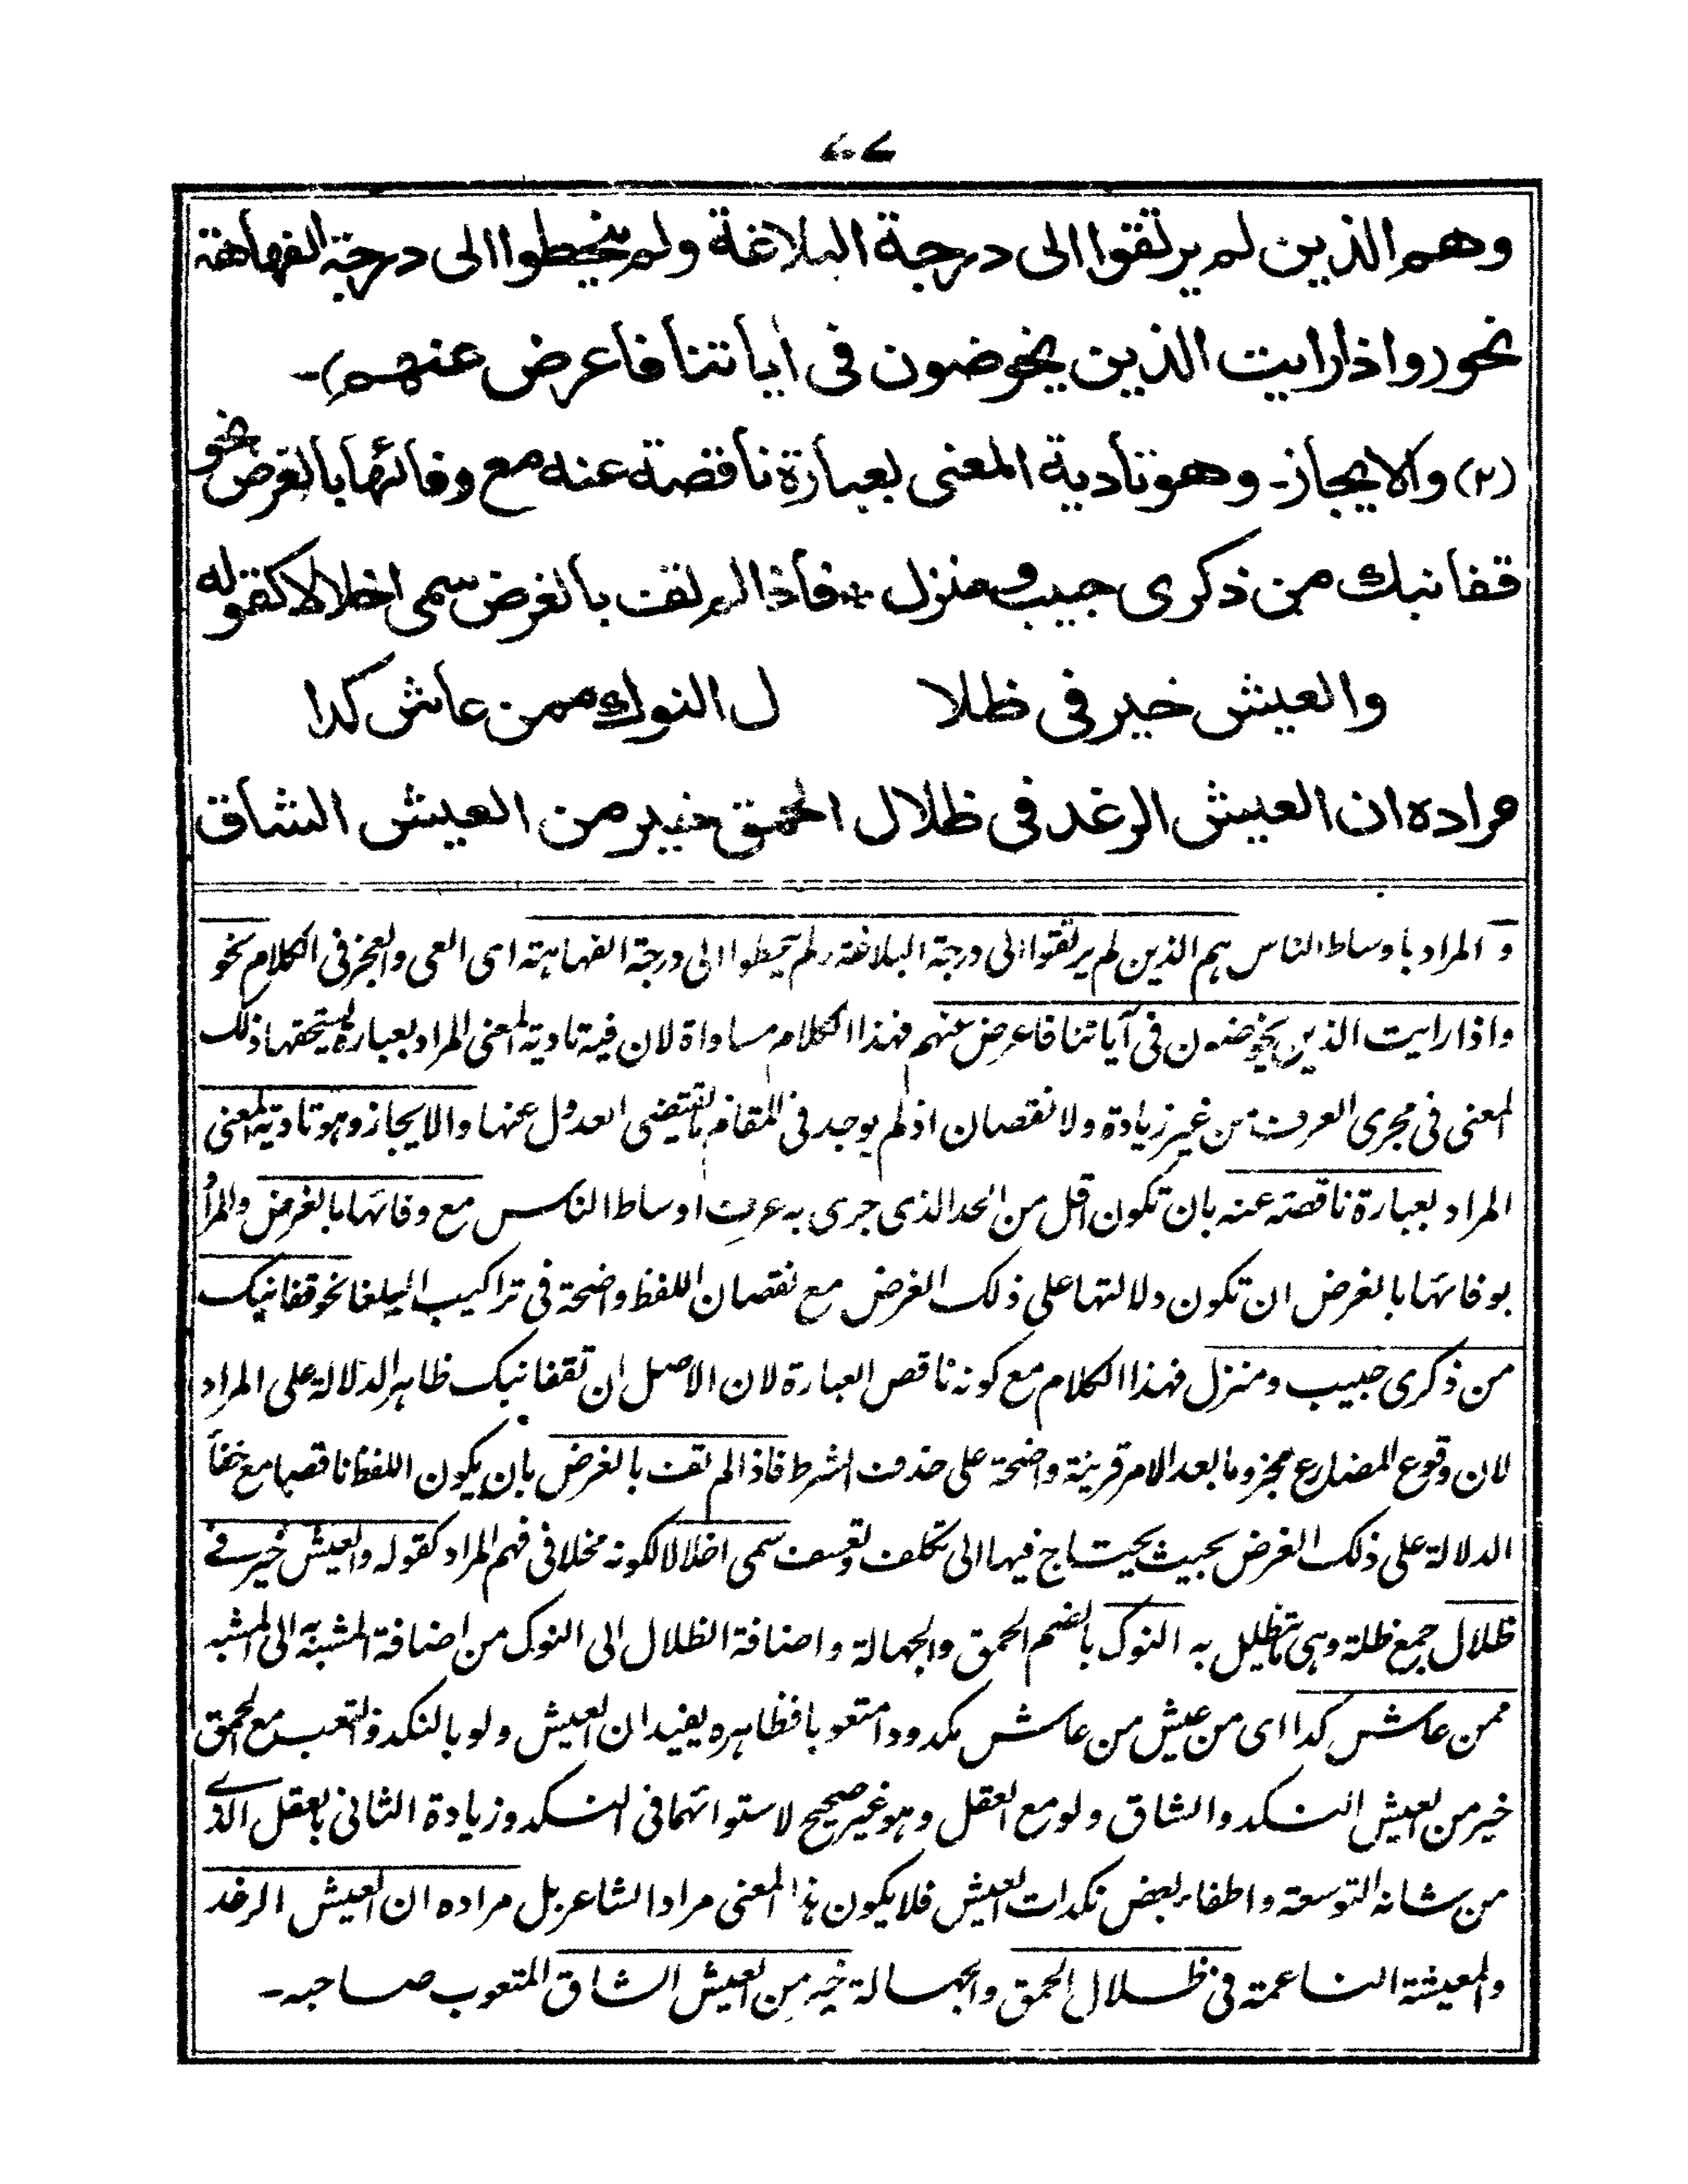 وهم الذين لم يرتقوا الى درجة البلاغة ولم ينحطوا الى درجة الفهاهة
نحو (واذا رايت الذين يخوضون فى اياتنا فاعرض عنهم)-
(٢) والايجاز- وهو تادية المعنى بعبارة ناقصة عنه مع وفائها بالغرض نحو
قفا نبك من ذكرى حبيب ومنزل * فاذا لم تف بالغرض سمى اخلالا كقوله
والعيش خير فى ظلا ل النوك ممن عاش كدا
مراده ان العيش الرغد فى ظلال الحمق خير من العيش الشاق
و المراد باوساط الناس هم الذين لم يرتقوا الى درجة البلاغة ولم ينحطوا الى درجة الفهاهة اى العى والعجز فى الكلام نحو
واذا رايت الذين يخوضون فى آياتنا فاعرض عنهم فهذا الكلام مساواة لان فيه تادية المعنى المراد بعبارة يستحقها ذلك
المعنى فى مجرى العرف من غير زيادة ولا نقصان اذ لم يوجد فى المقام ما يقتضى العدول عنها والايجاز وهو تادية المعنى
المراد بعبارة ناقصة عنه بان تكون اقل من الحد الذى جرى به عرف اوساط الناس مع وفائها بالغرض والمراد
بوفائها بالغرض ان تكون دلالتها على ذلك الغرض مع نقصان اللفظ واضحة فى تراكيب البلغا نحو قفا نبك
من ذكرى حبيب ومنزل فهذا الكلام مع كونه ناقص العبارة لان الاصل ان تقفا نبك ظاهر الدلالة على المراد
لان وقوع المضارع مجزوما بعد الامر قرينة واضحة على حذف الشرط فاذا لم تف بالغرض بان يكون اللفظ ناقصا مع خفأ
الدلالة على ذلك الغرض بحيث يحتاج فيها الى تكلف وتعسف سمى اخلالا لكونه مخلا فى فهم المراد كقوله والعيش خير فے
ظلال جمع ظلة وهى ما يتظلل به النوك بالضم الحمق والجهالة واضافة الظلال الى النوك من اضافة المشبه به الى المشبه
ممن عاش كدا اى من عيش من عاش مكدودا متعوبا فظاهره يفيد ان العيش ولو بالنكد والتعب مع الحمق
خير من العيش النكد والشاق ولو مع العقل وهو غير صحيح لاستوائهما فى النكد وزيادة الثانى بالعقل الذے
من شانه التوسعة واطفاء بعض نكدات العيش فلا يكون هذا المعنى مراد الشاعر بل مراده ان العيش الرغد
والمعيشة الناعمة فى ظلال الحمق والجهالة خير من العيش الشاق المتعوب صاحبه-